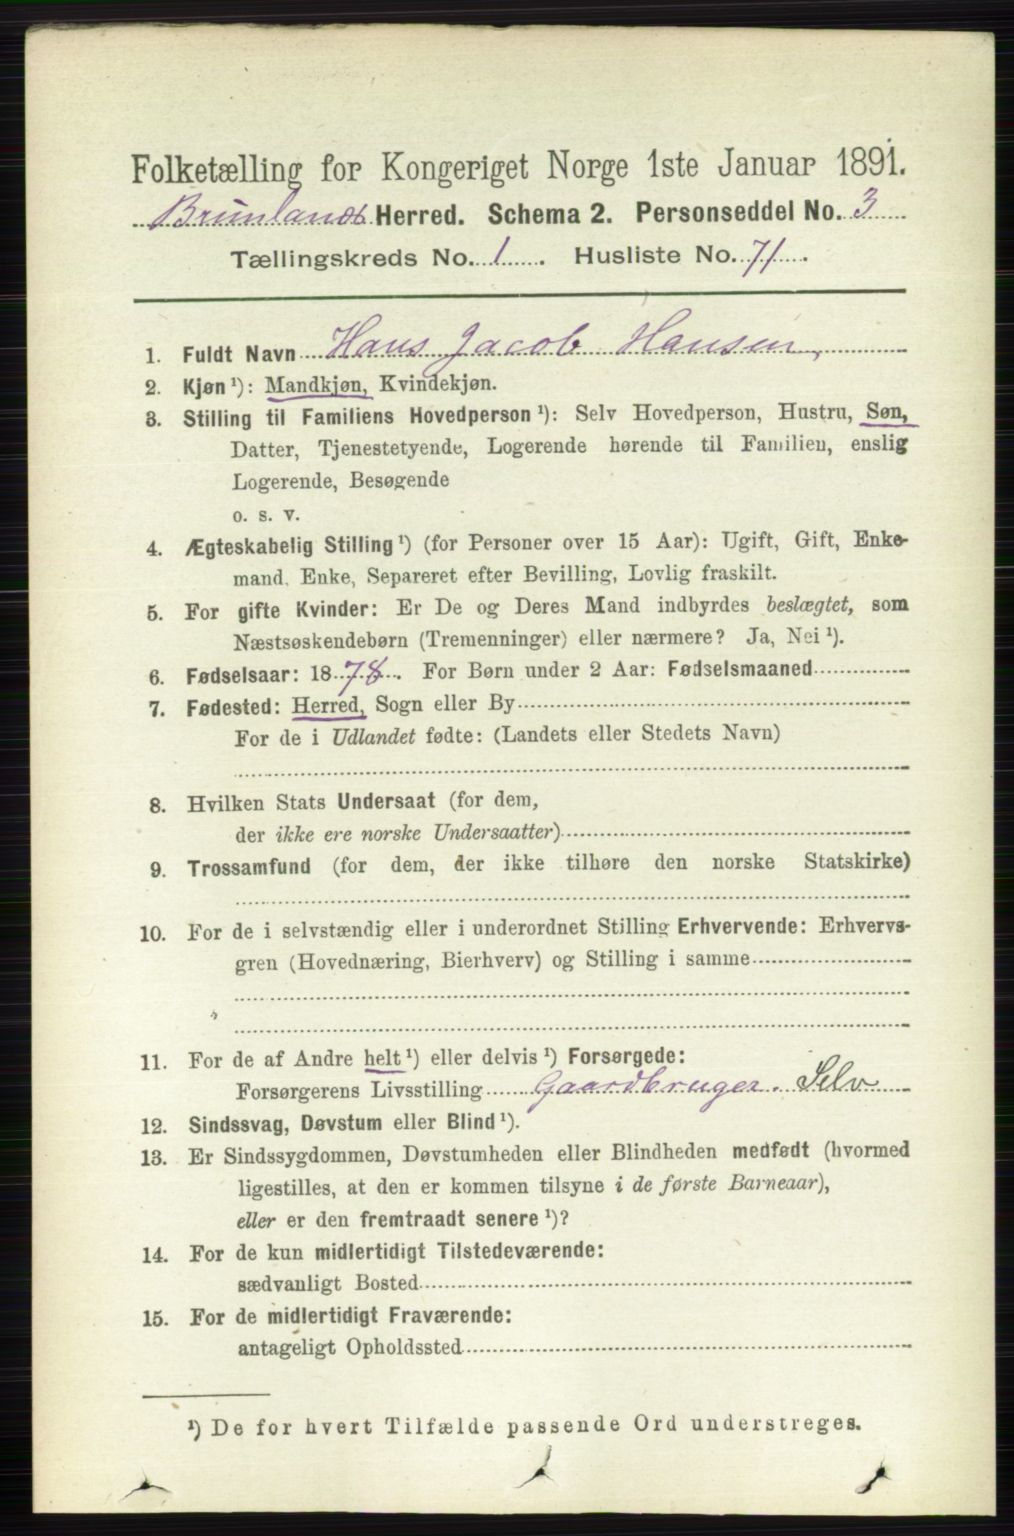 Folketælling for Kongeriget Norge 1ste Januar 1891.
Brunlanæs Herred. Schema 2. Personseddel No. 3
Tællingskreds No. 1. Husliste No. 71.
1. Fuldt Navn Hans Jacob Hansen,
2. Kjøn ¹): Mandkjøn, Kvindekjøn.
3. Stilling til Familiens Hovedperson ¹): Selv Hovedperson, Hustru, Søn,
Datter, Tjenestetyende, Logerende hørende til Familien, enslig
Logerende, Besøgende
o. s. v.
4. Ægteskabelig Stilling ¹) (for Personer over 15 Aar): Ugift, Gift, Enke-
mand, Enke, Separeret efter Bevilling, Lovlig fraskilt.
5. For gifte Kvinder: Er De og Deres Mand indbyrdes beslægtet, som
Næstsøskendebørn (Tremenninger) eller nærmere? Ja, Nei ¹).
6. Fødselsaar: 1878. For Børn under 2 Aar: Fødselsmaaned
7. Fødested: Herred, Sogn eller By
For de i Udlandet fødte: (Landets eller Stedets Navn)
8. Hvilken Stats Undersaat (for dem,
der ikke ere norske Undersaatter)
9. Trossamfund (for dem, der ikke tilhøre den norske Statskirke)
10. For de i selvstændig eller i underordnet Stilling Erhvervende: Erhvervs-
gren (Hovednæring, Bierhverv) og Stilling i samme
11. For de af Andre helt ¹) eller delvis ¹) Forsørgede:
Forsørgerens Livsstilling Gaardbruger. Selv
12. Sindssvag, Døvstum eller Blind ¹).
13. Er Sindssygdommen, Døvstumheden eller Blindheden medfødt (hvormed
ligestilles, at den er kommen tilsyne i de første Barneaar),
eller er den fremtraadt senere ¹)?
14. For de kun midlertidigt Tilstedeværende:
sædvanligt Bosted
15. For de midlertidigt Fraværende:
antageligt Opholdssted
¹) De for hvert Tilfælde passende Ord understreges.